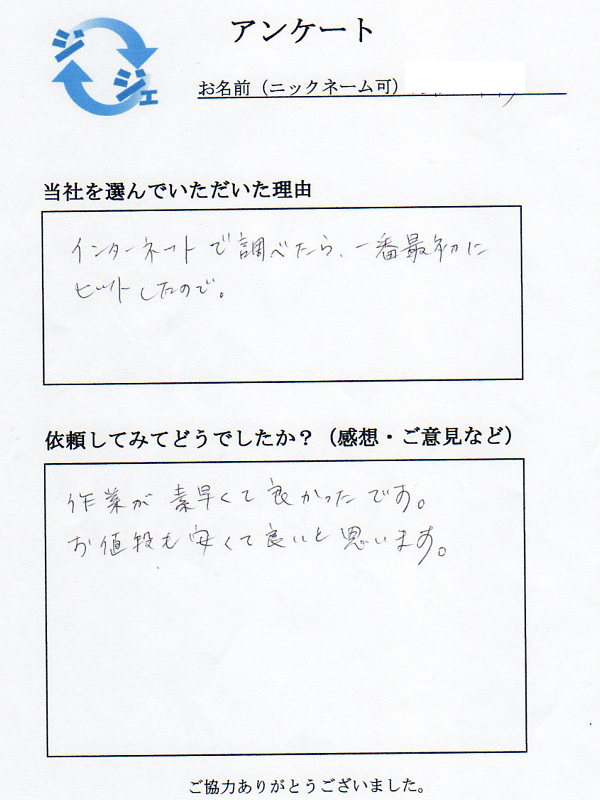 ジ
ジェ
アンケート
お名前（ニックネーム可）
当社を選んでいただいた理由
インターネットで調べたら、一番最初に
ヒットしたので。
依頼してみてどうでしたか？（感想・ご意見など）
作業が素早くて良かったです。
お値段も安くて良いと思います。
ご協力ありがとうございました。